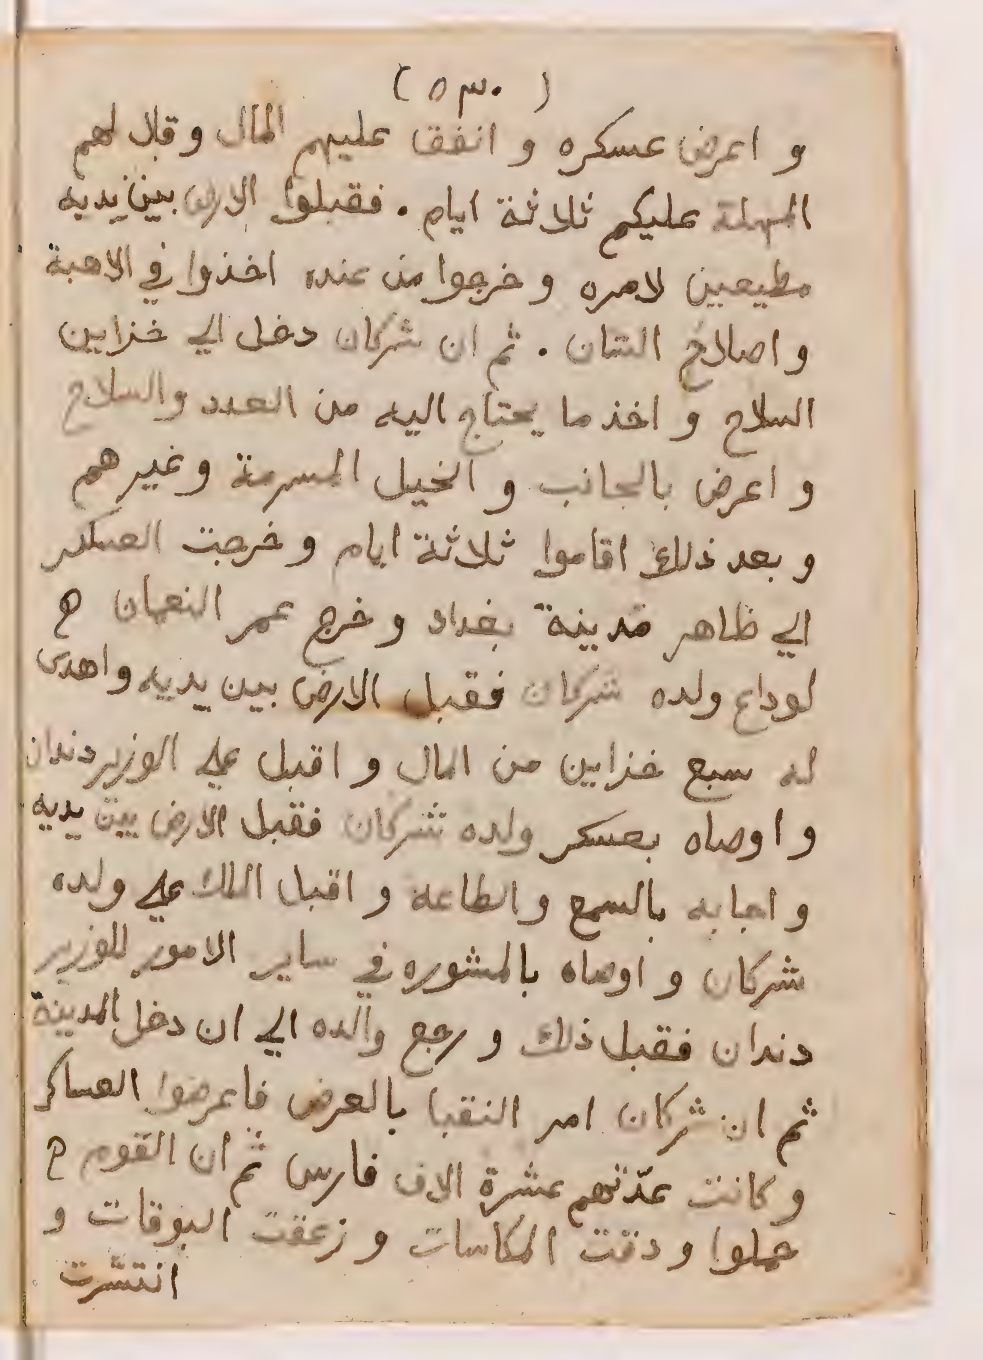 ( ٥٣٠ )
و اعرض عسكره و انفق عليهم المال و قال لهم
المهلة عليكم ثلاثة ايام . فقبلوا الارض بين يديه
مطيعين لامره و خرجوا من عنده اخذوا في الاهبة
و اصلاح الشان . ثم ان شركان دخل الي خزاين
السلاح و اخذ ما يحتاج اليه من العدد والسلاح
و اعرض بالجانب و الخيل المسرمة و غيرهم
و بعد ذلك اقاموا ثلاثة ايام و خرجت العسكر
الي ظاهر مدينة بغداد و خرج عمر النعمان ح
لوداع ولده شركان فقبل الارض بين يديه و اهدى
له سبع خزاين من المال و اقبل علي الوزير دندان
و اوصاه بعسكر ولده شركان فقبل الارض بين يديه
و اجابه بالسمع و الطاعة و اقبل الملك علي ولده
شركان و اوصاه بالمشوره في ساير الامور للوزير
دندان فقبل ذلك و رجع والده الي ان دخل المدينة
ثم ان شركان امر النقبا بالعرض فاعرضوا العساكر
و كانت عدّتهم عشرة الاف فارس ثم ان القوم ح
حملوا و دقت الكاسات و زعقت البوقات و
انتشرت